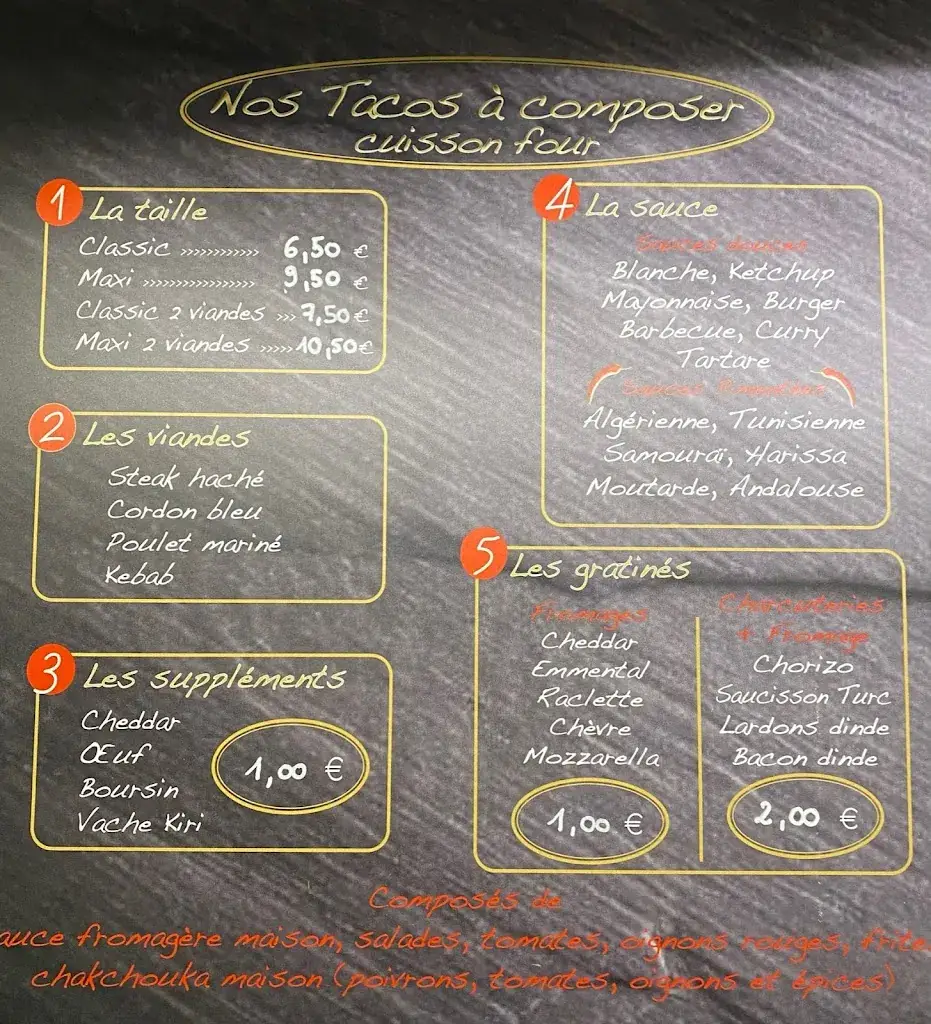 Nos Tacos à composer
cuisson four
1 La taille
Classic »»»»»» 6,50 €
Maxi »»»»»»»»» 9,50 €
Classic 2 viandes »» 7,50 €
Maxi 2 viandes »»» 10,50 €
2 Les viandes
Steak haché
Cordon bleu
Poulet mariné
Kebab
3 Les suppléments
Cheddar
Œuf
Boursin
Vache Kiri
1,00 €
4 La sauce
Sauces douces
Blanche, Ketchup
Mayonnaise, Burger
Barbecue, Curry
Tartare
Sauces
Algérienne, Tunisienne
Samouraï, Harissa
Moutarde, Andalouse
5 Les gratinés
Fromages
Cheddar
Emmental
Raclette
Chèvre
Mozzarella
1,00 €
Charcuteries
+ Fromage
Chorizo
Saucisson Turc
Lardons dinde
Bacon dinde
2,00 €
Composés de
auce fromagère maison, salades, tomates, oignons rouges, frite
chakchouka maison (poivrons, tomates, oignons et épices)